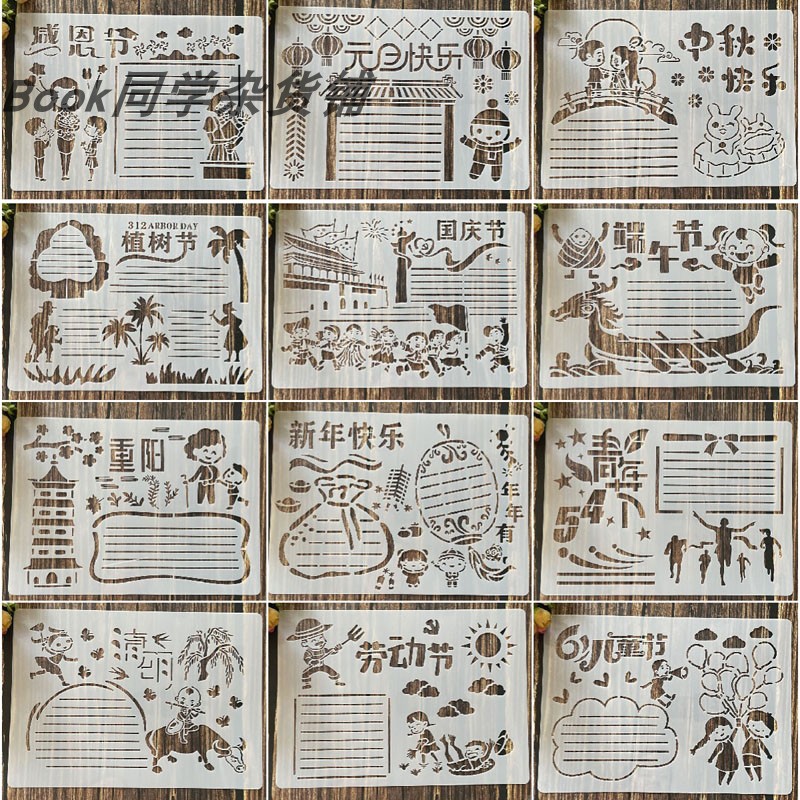 感恩节
元旦快乐
中秋
快乐
Book同学杂货铺
312 ARBOR DAY
植树节
国庆节
端午节
重阳
新年快乐
年年有
青年节
54
清明
劳动节
61儿童节